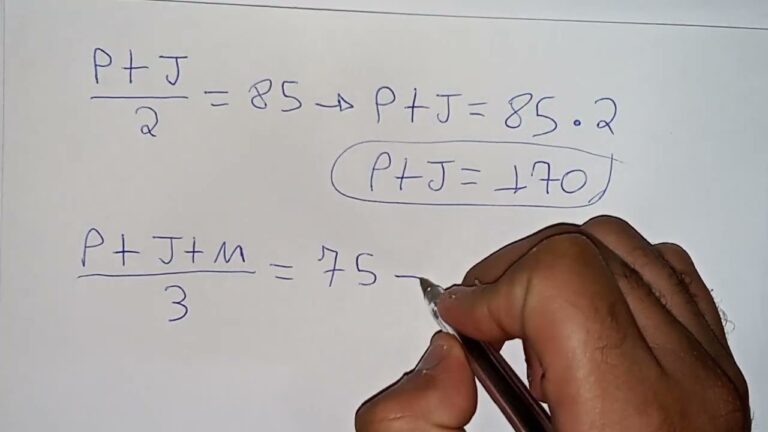 P+J/2 = 85 → P+J = 85 . 2
P+J = 170
P+J+M/3 = 75 –